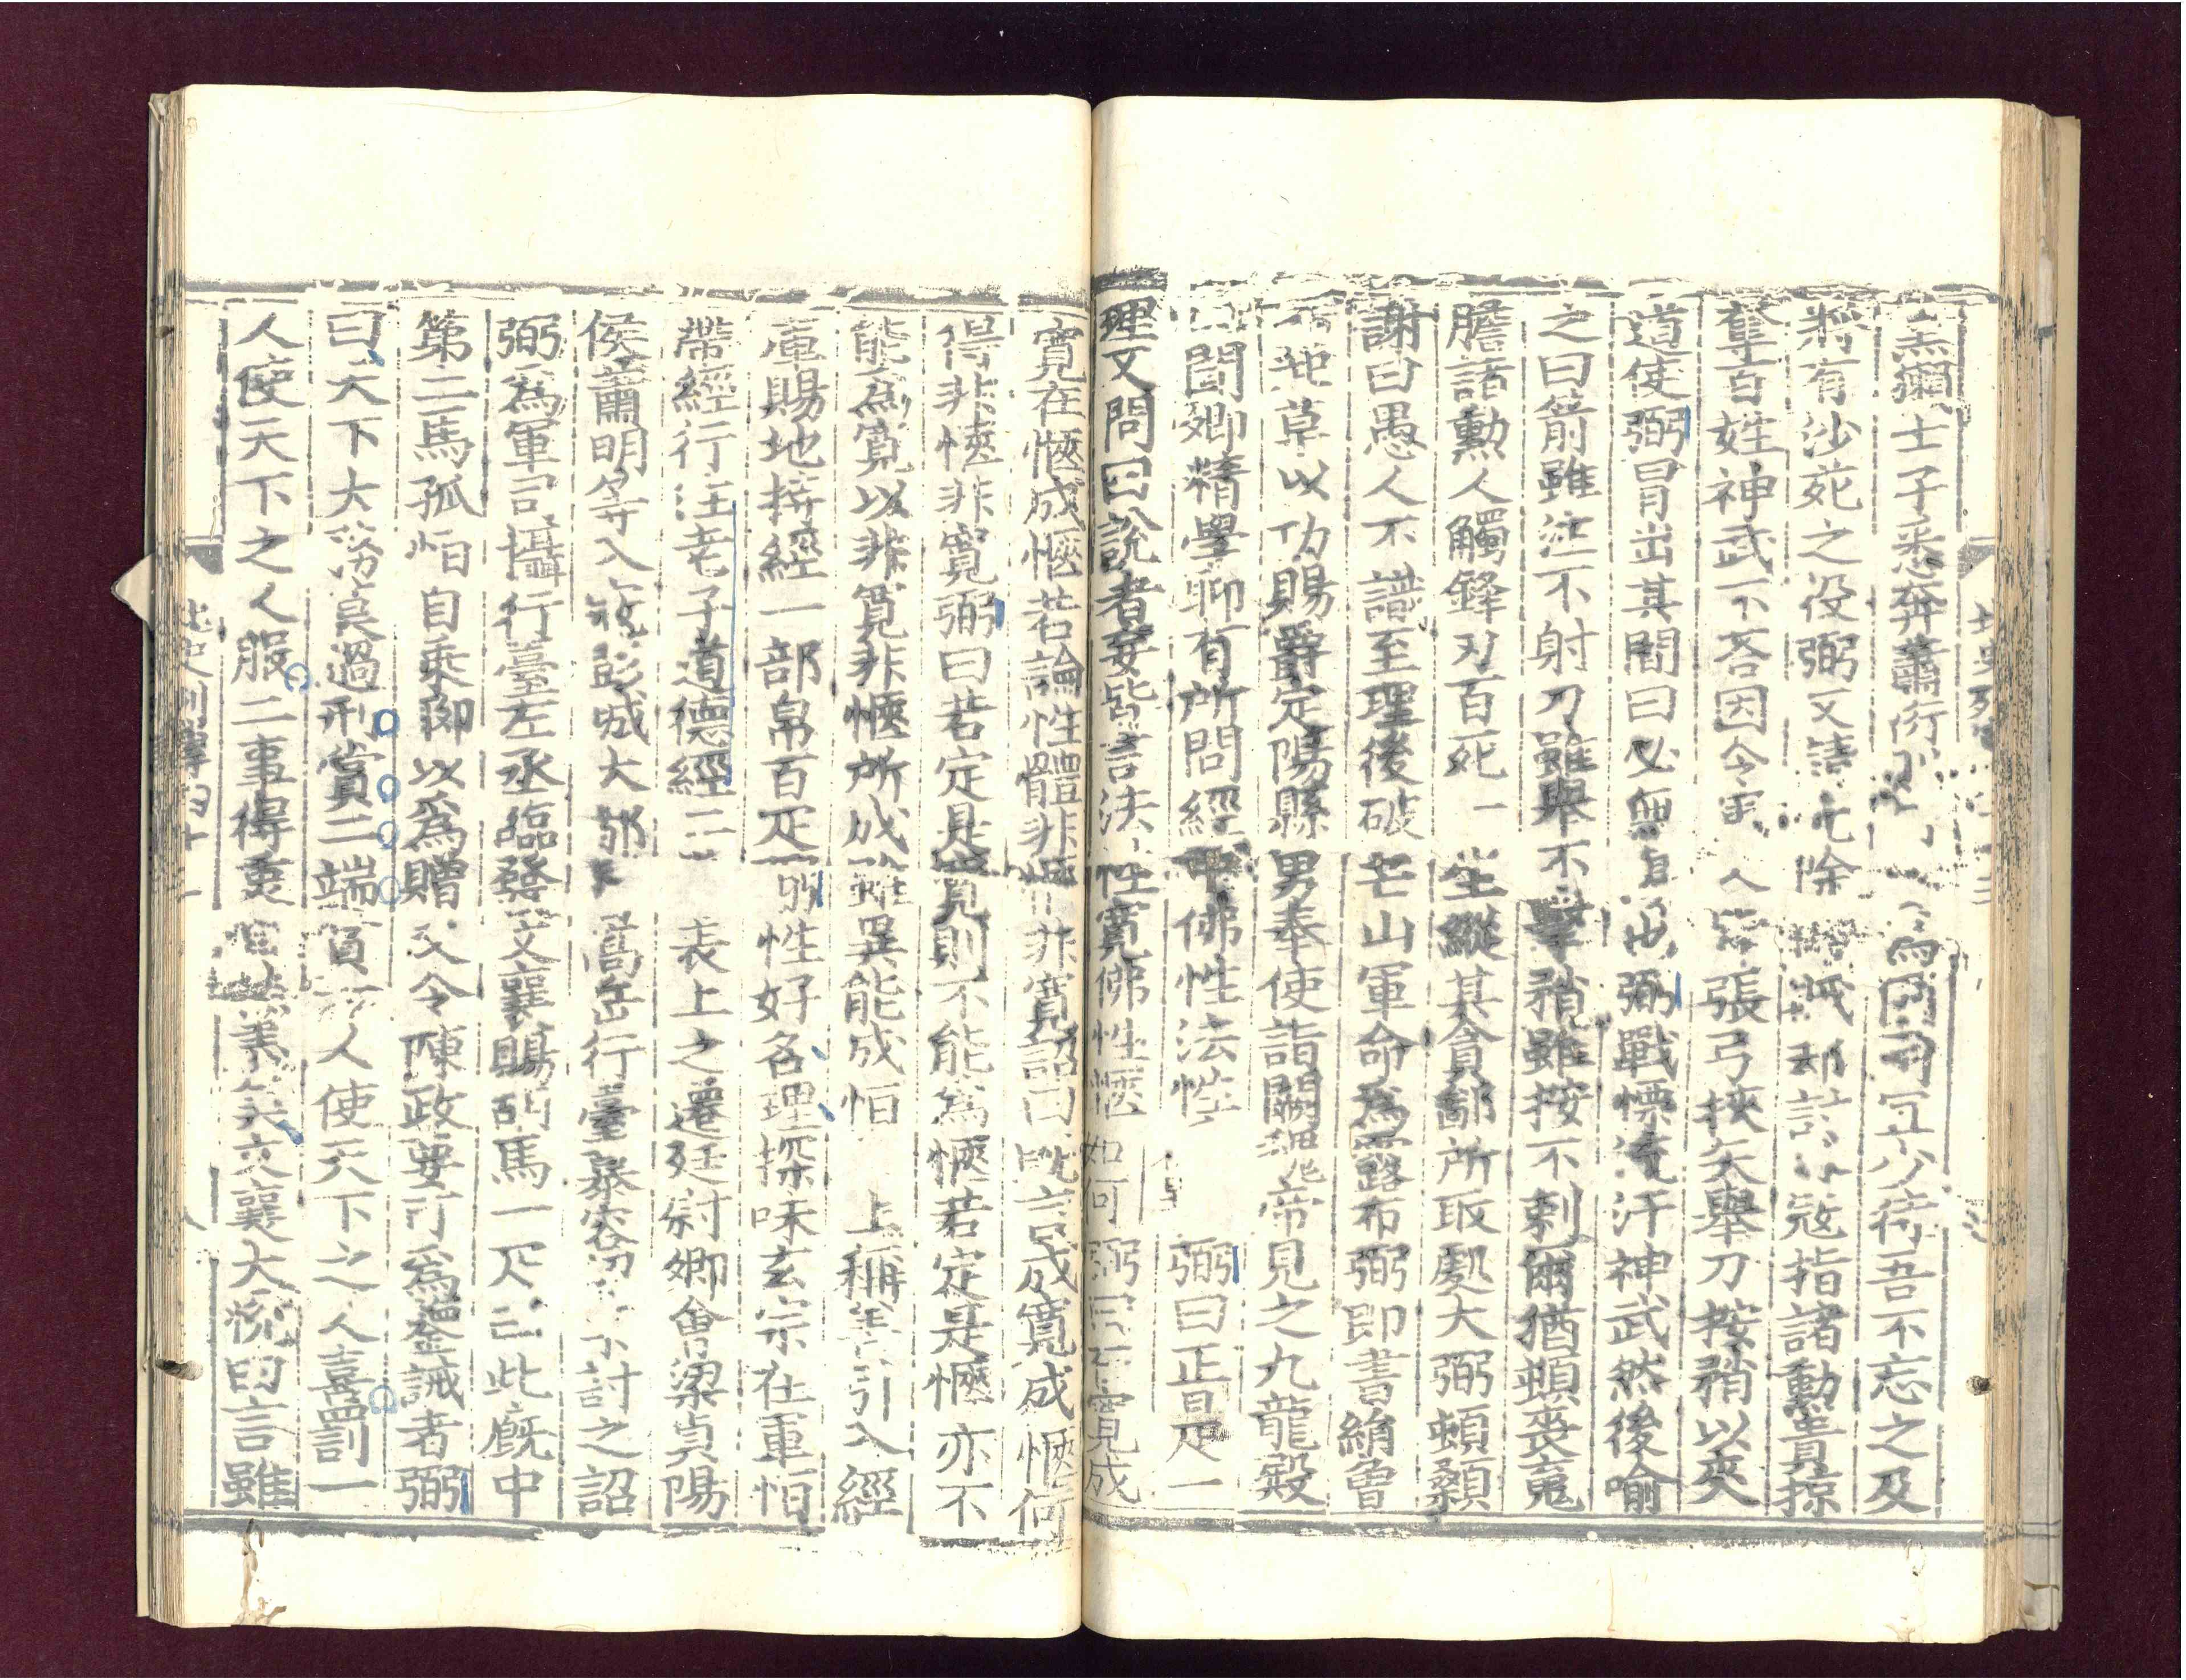 黑獺士子悉奔蕭衍為國司宜少待吾不忘之及
將有沙苑之役弼又請先除掠賊却討寇指諸勳貴掠
奪百姓神武不荅因令軍人張弓挾矢舉刀按矟以夾
道使弼冒出其間曰必無自也弼戰慄流汗神武然後喻
之曰箭雖注不射刀雖舉不擊矟雖按不刺爾猶頓喪䰟
膽諸勳人觸鋒刃百死一生縱其貪鄙所取處大弼頓顙
謝曰愚人不識至理後破芒山軍命爲露布弼即書絹曾
不起草以功賜爵定陽縣男奉使詣闕魏帝見之九龍殿
曰聞卿精學聊有所問經中佛性法性弼曰正是一
理又問曰說者妄皆言法性寬佛性愜如何弼曰在寬成
寬在愜成愜若論性體非愜非寬詔曰既言成寬成愜何
得非愜非寬弼曰若定是寬則不能爲愜若定是愜亦不
能爲寬以非寬非愜所成雖異能成恒上稱善引入經
庫賜地持經一部帛百疋弼性好名理探味玄宗在軍恒
帶經行注老子道德經二表上之遷廷尉卿會梁貞陽
侯蕭明等入彭城大都嵩岳行臺慕容討之詔
弼爲軍司攝行臺左丞臨發文襄賜胡馬一疋云此廐中
第二馬孤恒自乘卿以爲贈又令陳政要可爲鑒誡者弼
曰天下大務莫過刑賞二端賞一人使天下之人喜罰一
人使天下之人服二事得衷自然盡美矣文襄大悅曰言雖
北史列傳四十